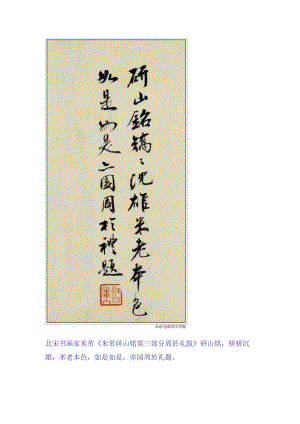 研山銘鎬〻沈雄米老本色
如是如是亦園周於禮題
北宋书画家米芾《米芾研山铭第三部分周於礼跋》研山铭，骄骄沉
雄，米老本色，如是如是，亦园周於礼题。